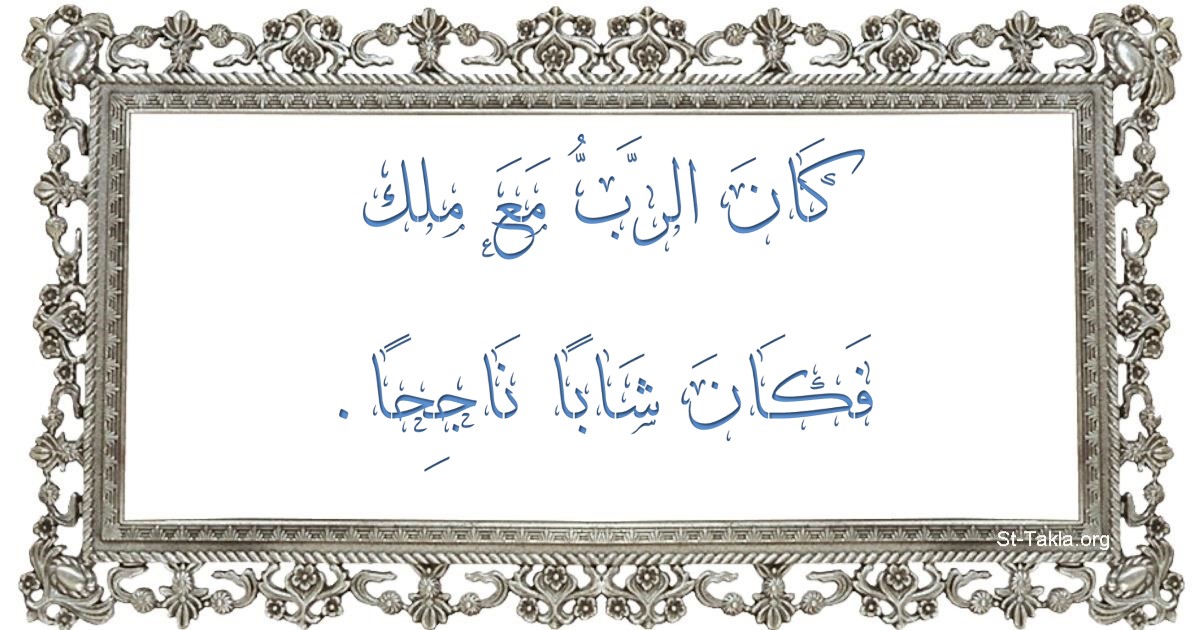 كَانَ الرَّبُّ مَعَ مِلك
فَكَانَ شَابًا نَاجِحًا .
St-Takla.org